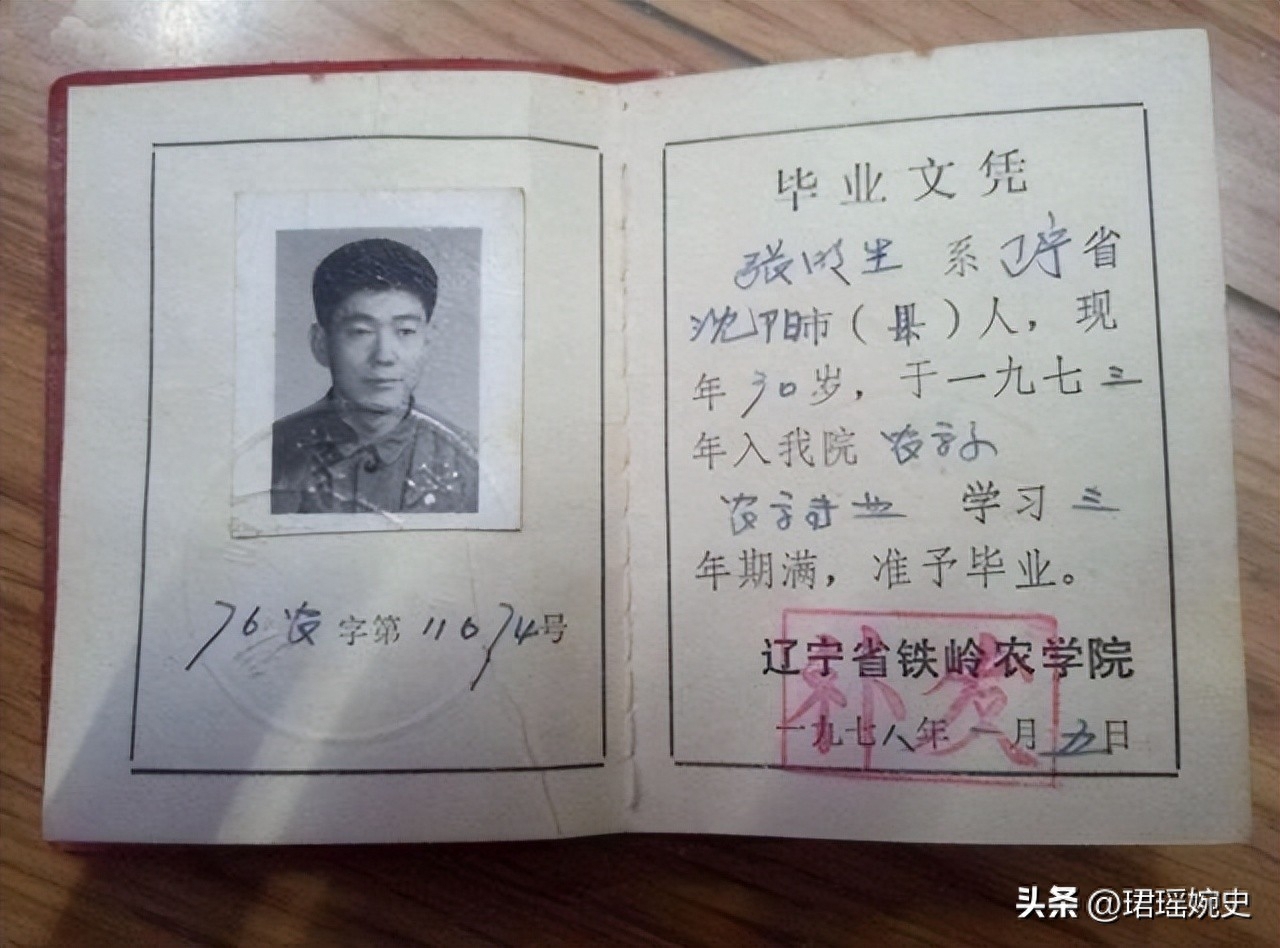 76农字第11074号
毕业文凭
张明生 系辽宁省
沈阳市（县）人，现
年30岁，于一九七三
年入我院 农学系
农学专业 学习三
年期满，准予毕业。
辽宁省铁岭农学院
补发
一九七八年一月五日
头条 @珺瑶婉史